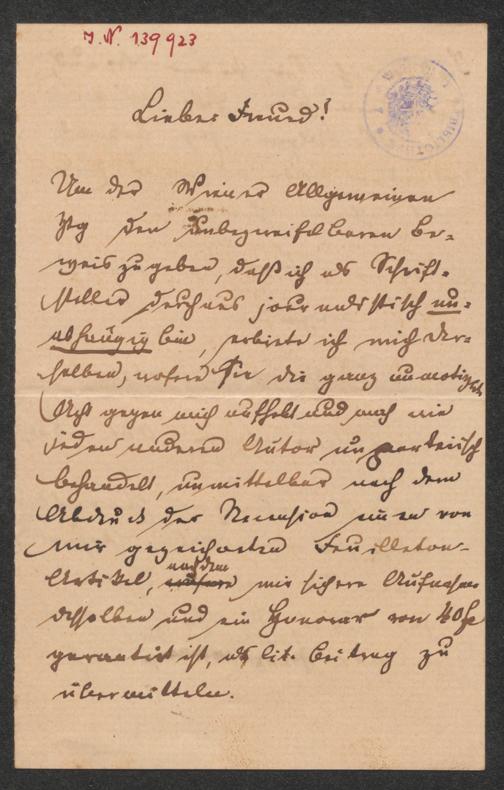 J.N. 139923
Lieber Freund!
Um der Wiener Allgemeinen
Ztg den unbezweifelbaren Be-
weis zu geben, daß ich als Schrift-
steller durchaus journalistisch un-
abhängig bin, erbiete ich mich der-
selben, sofern sie die ganz unmotivirte
Acht gegen mich aufhebt und mich wie
jeden anderen Autor unparteiisch
behandelt, unmittelbar nach dem
Abdruck der Recension einen von
mir gezeichneten Feuilleton-
Artikel, nachdem mir sichere Aufnahme
desselben und ein Honorar von 40 fl
garantirt ist, als lit. Beitrag zu
übermitteln.